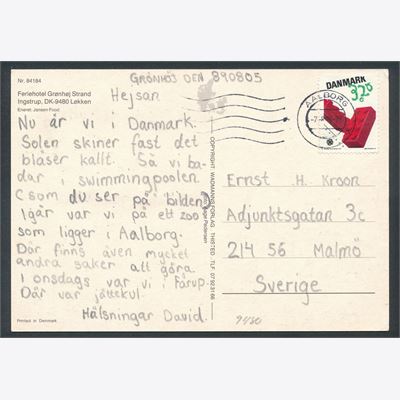 Nr. 84184
Feriehotel Grønhøj Strand
Ingstrup, DK-9480 Løkken
Eneret: Jensen Food
GRØNHÖJ DEN 890805
Hejsan
Nu är vi i Danmark.
Solen skiner fast det
blåser kallt. Så vi ba-
dar i swimmingpoolen.
(som du ser på bilden)
Igår var vi på ett zoo
som ligger i Aalborg.
Där finns även mycket
andra saker att göra.
I onsdags var vi i Fårup.
Där var jättekul.
Hälsningar David.
Printed in Denmark
COPYRIGHT WADMANNS FORLAG THISTED TLF. 07 92 31 66
Pedersen
DANMARK
320
AALBORG
Ernst .H. Kroon
Adjunktsgatan 3c
214 56 Malmö
Sverige
9480